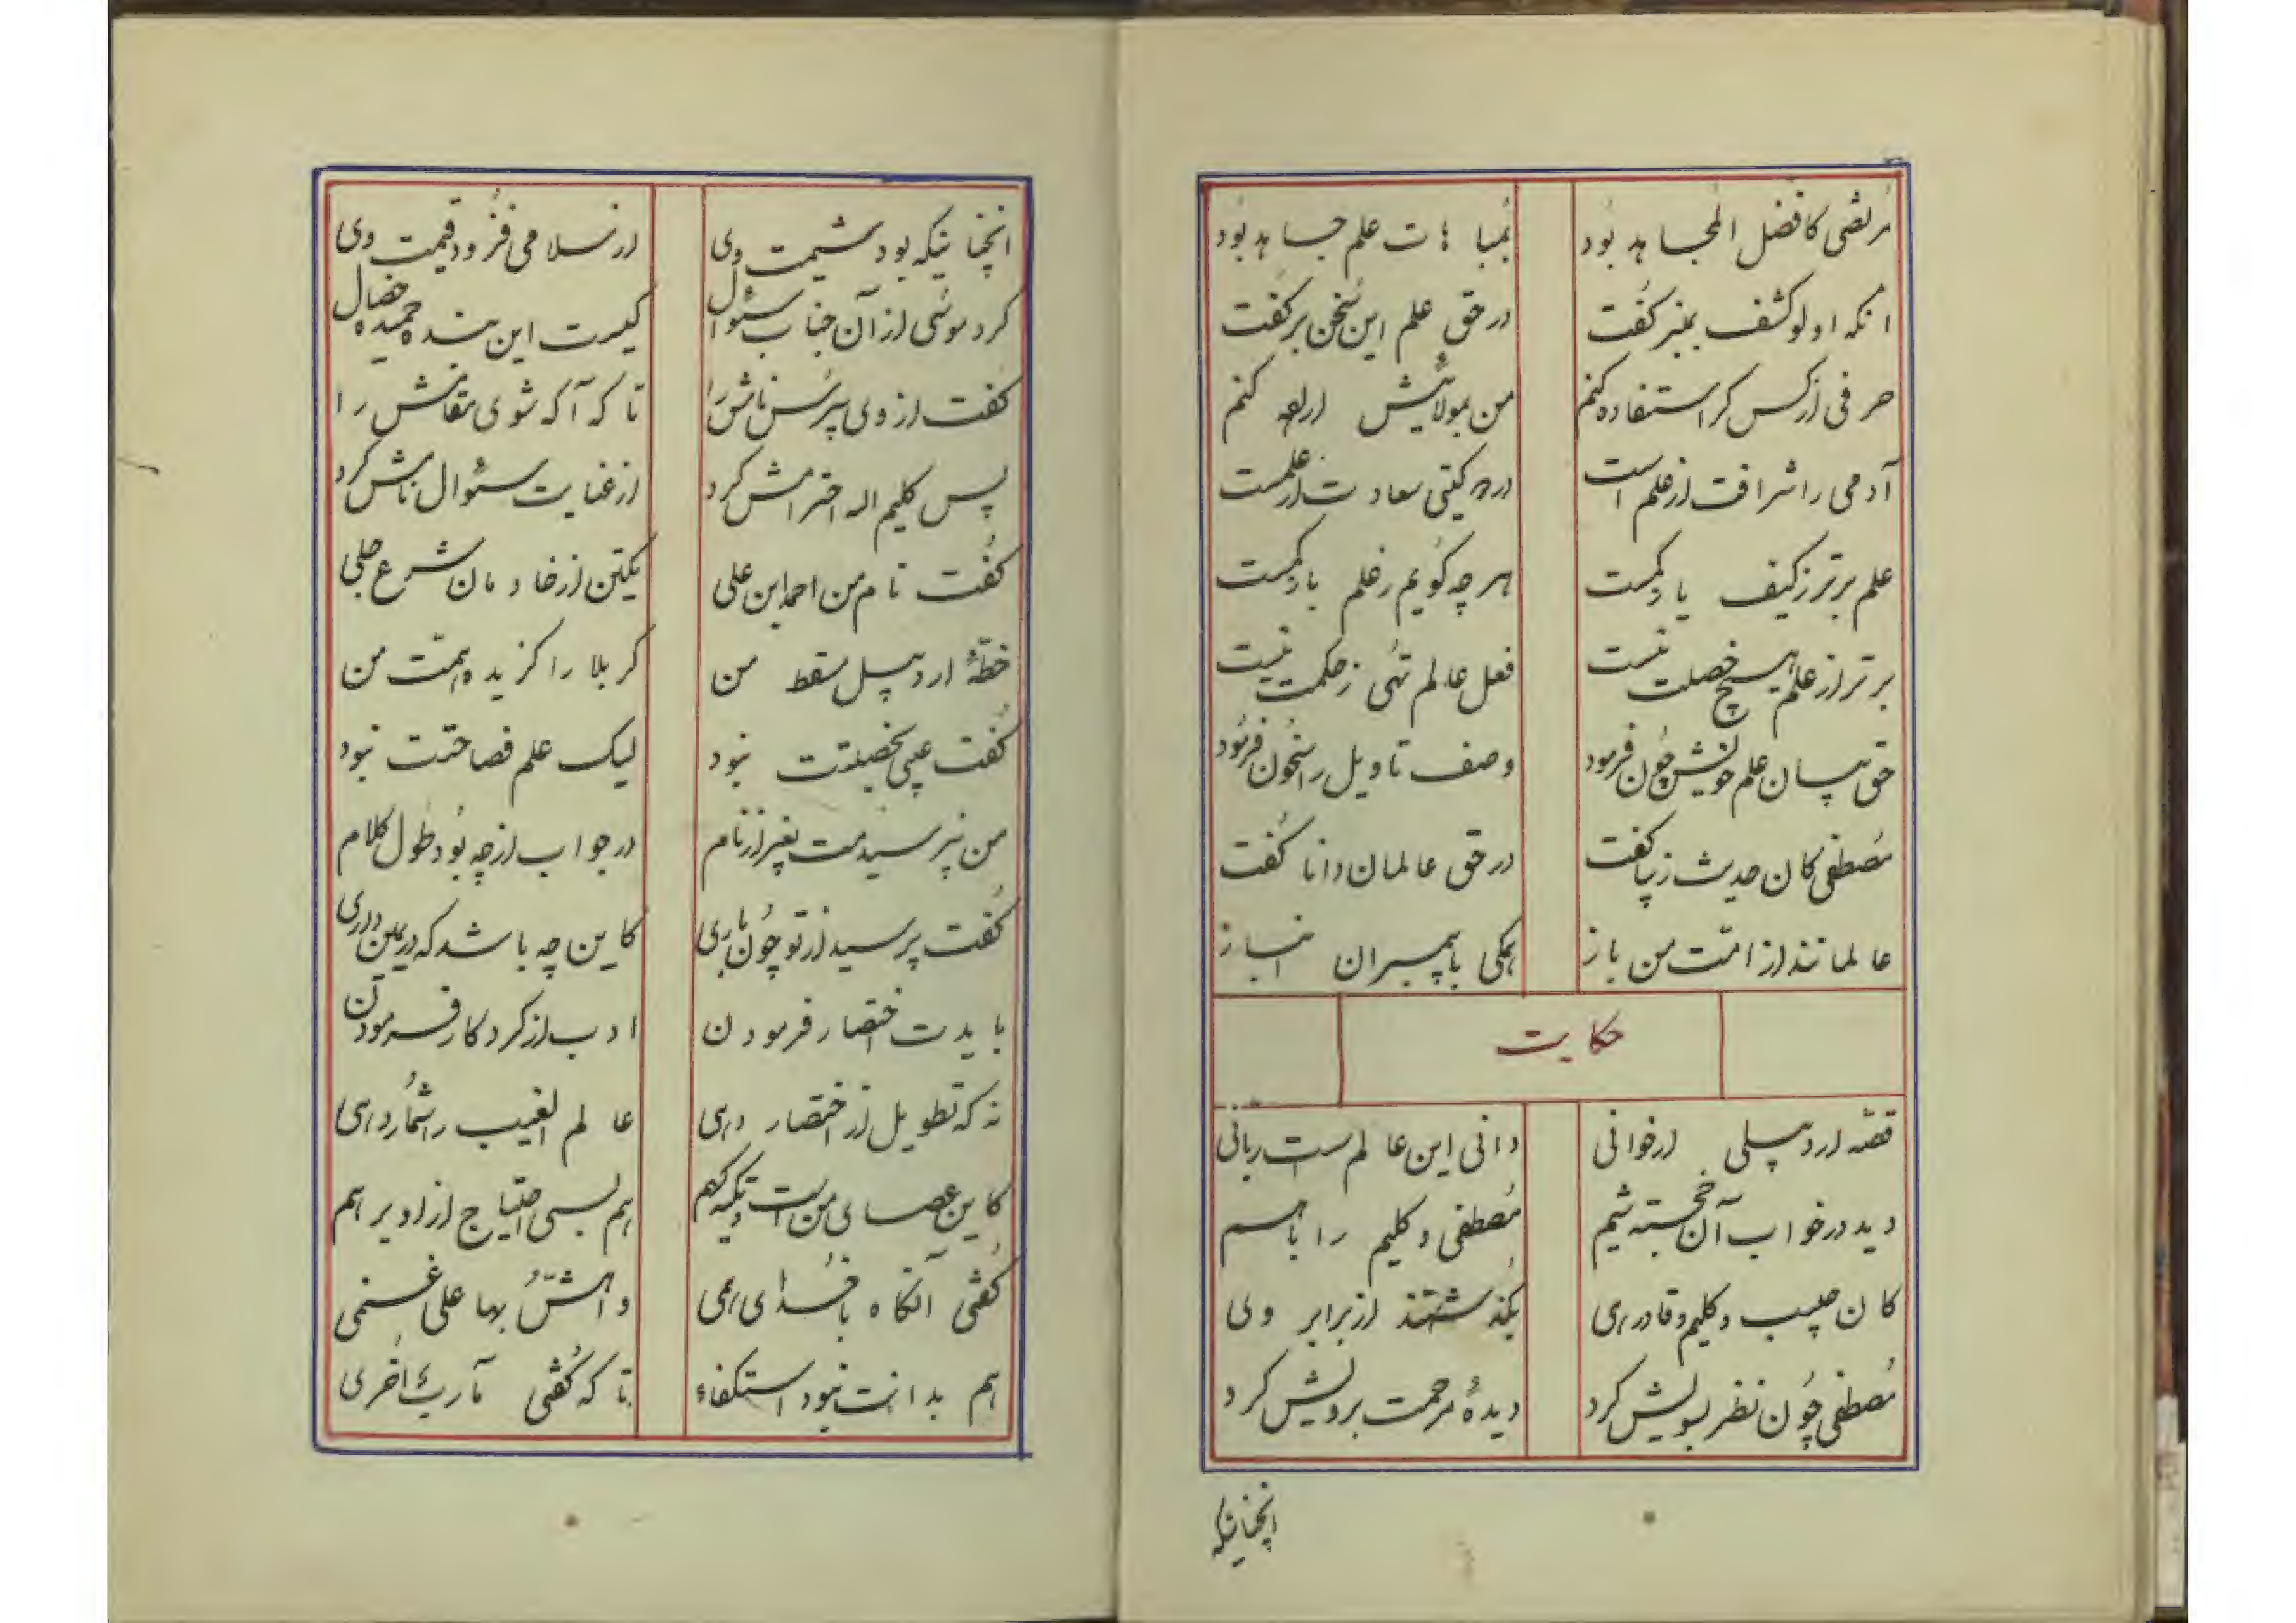 مرتضی کافضل المجاهد بود بمباهات علم جاهد بود
انکه او لو کشف بمنبر کفت در حق علم این سخن بر کفت
حرفی از کس کر استفاده کنم من بمولائیش اراده کنم
آدمی را شرافت از علم است در دو کیتی سعادت از علمست
علم برتر ز کیف یا وکمست هر چه کویم ز علم باز کمست
برتر از علم هیچ خصلت نیست فعل عالم تهی ز حکمت نیست
حق بیان علم خویش چون فرمود وصف تاویل راسخون فرمود
مصطفی کان حدیث زیبا کفت در حق عالمان دانا کفت
عالمانند از امت من باز همکی با پیمبران انباز
حکایت
قصه اردبیلی ار خوانی دانی این عالم است ربانی
دید در خواب آن خجسته شیم مصطفی و کلیم را باهم
کان حبیب و کلیم وقادری بگذشتند از برابر وی
مصطفی چون نظر بسویش کرد دیدهٔ مرحمت برویش کرد
انچنانیکه
انچنانیکه بود شیمت وی از سلامی فزود قیمت وی
کرد موسی از آن جناب سئوال کیست این بنده حمیده خصال
کفت از وی بپرس نامش را تا که آکه شوی مقامش را
پس کلیم اله احترامش کرد از عنایت سئوال نامش کرد
کفت نام من احمد ابن علی یکتن از خادمان شرع جلی
خطهٔ اردبیل مسقط من کربلا را کزیده همت من
کفت عیبی بخصیلتت نبود لیک علم فصاحتت نبود
من نپرسیدمت بغیر از نام در جواب از چه بود طول کلام
کفت پرسید از تو چون باری کاین چه باشد که در یمین داری
بایدت اختصار فرمودن ادب از کردکار فرمودن
نه که تطویل از اختصار دری عالم الغیب را شمار دری
کاین عصای من است و تکیه کهم هم بسی احتیاج از او برهم
کفتی آنکاه با خدای همی واهش بها علی غنمی
هم بدانت نبود استکفاء تا که کفتی مآرب اخری